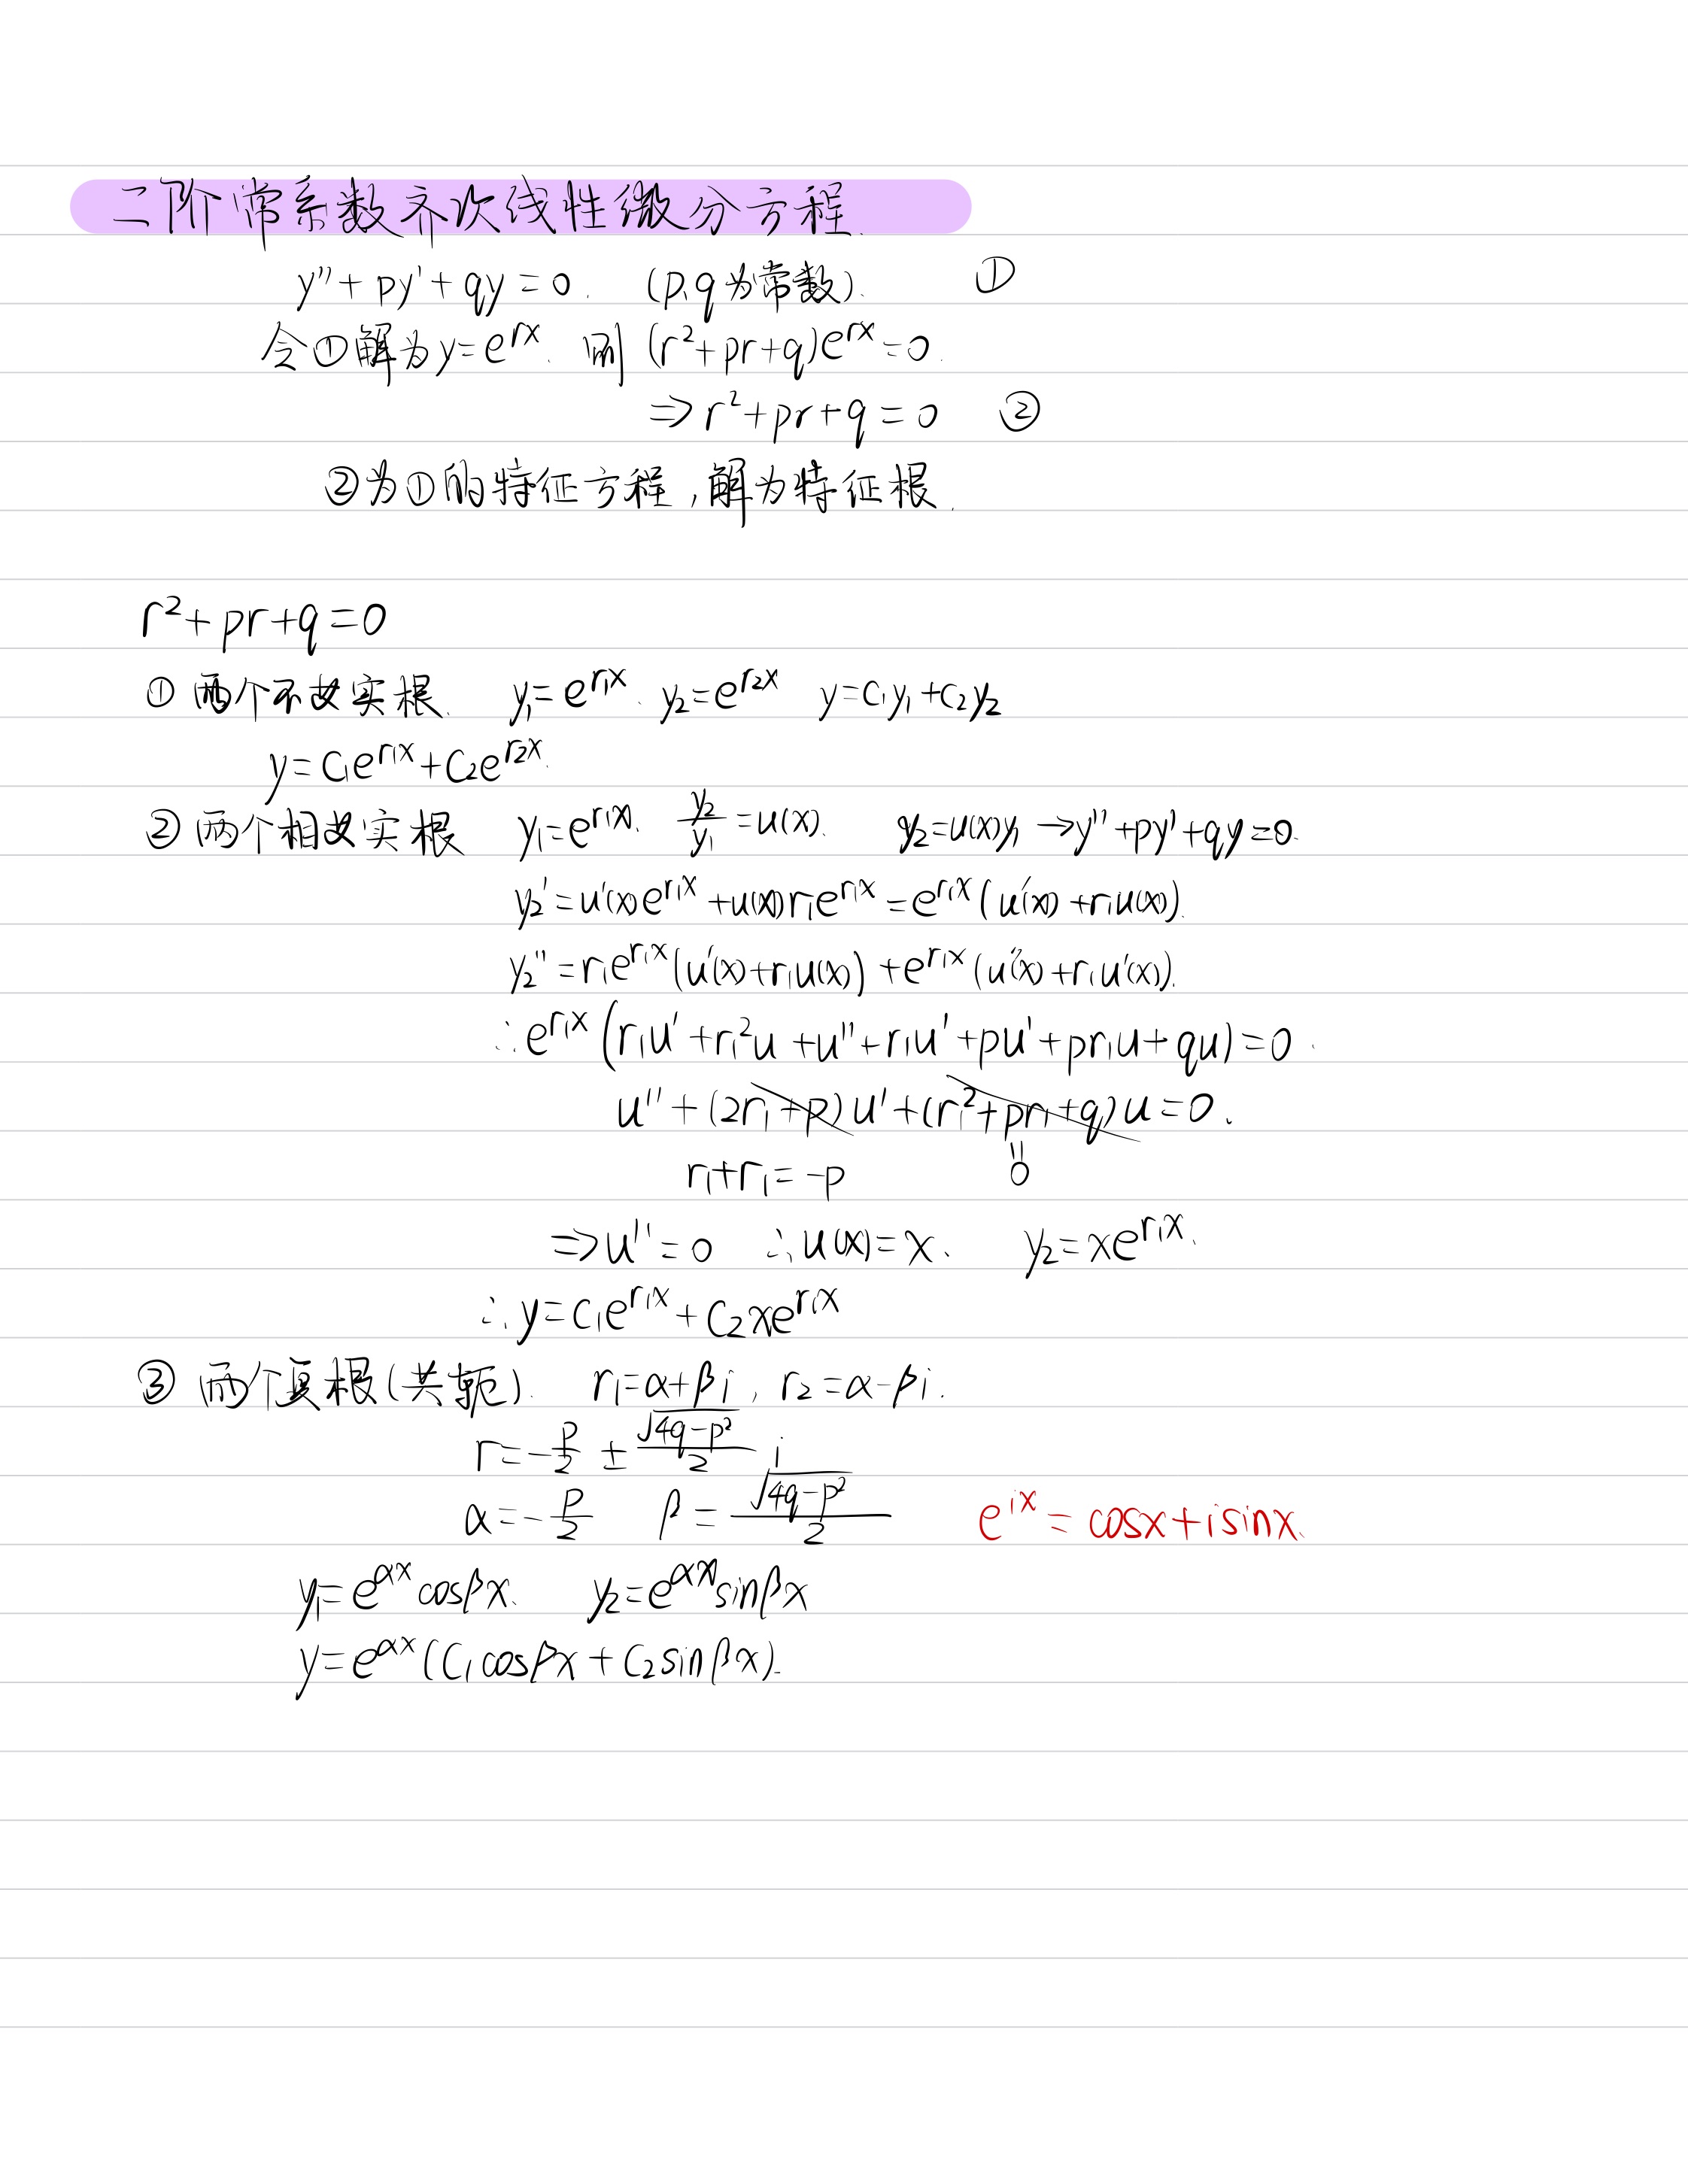 二阶常系数齐次线性微分方程.
y''+py'+qy=0. (p,q为常数). ①
令①解为y=e^{rx}. 则 (r²+pr+q)e^{rx}=0.
⇒r²+pr+q=0 ②
②为①的特征方程,解为特征根.
r²+pr+q=0
① 两个不等实根. y₁=e^{r₁x}. y₂=e^{r₂x} y=C₁y₁+C₂y₂
y=C₁e^{r₁x}+C₂e^{r₂x}.
② 两个相等实根 y₁=e^{r₁x}. \frac{y₂}{y₁}=u(x). y₂=u(x)y₁→y''+py'+qy=0.
y₂'=u'(x)e^{r₁x}+u(x)r₁e^{r₁x}=e^{r₁x}(u'(x)+r₁u(x)).
y₂''=r₁e^{r₁x}(u'(x)+r₁u(x))+e^{r₁x}(u''(x)+r₁u'(x)).
∴e^{r₁x}(r₁u'+r₁²u+u''+r₁u'+pu'+pr₁u+qu)=0.
u''+(2r₁+p)u'+(r₁²+pr₁+q)u=0.
r₁+r₁=-p 0
⇒u''=0 ∴u(x)=x. y₂=xe^{r₁x}.
∴y=C₁e^{r₁x}+C₂xe^{r₁x}
③ 两个复根(共轭). r₁=α+βi, r₂=α-βi.
r=-\frac{p}{2}±\frac{\sqrt{4q-p²}}{2}i
α=-\frac{p}{2} β=\frac{\sqrt{4q-p²}}{2} e^{ix}=cosx+isinx.
y₁=e^{αx}cosβx. y₂=e^{αx}sinβx
y=e^{αx}(C₁cosβx+C₂sinβx).